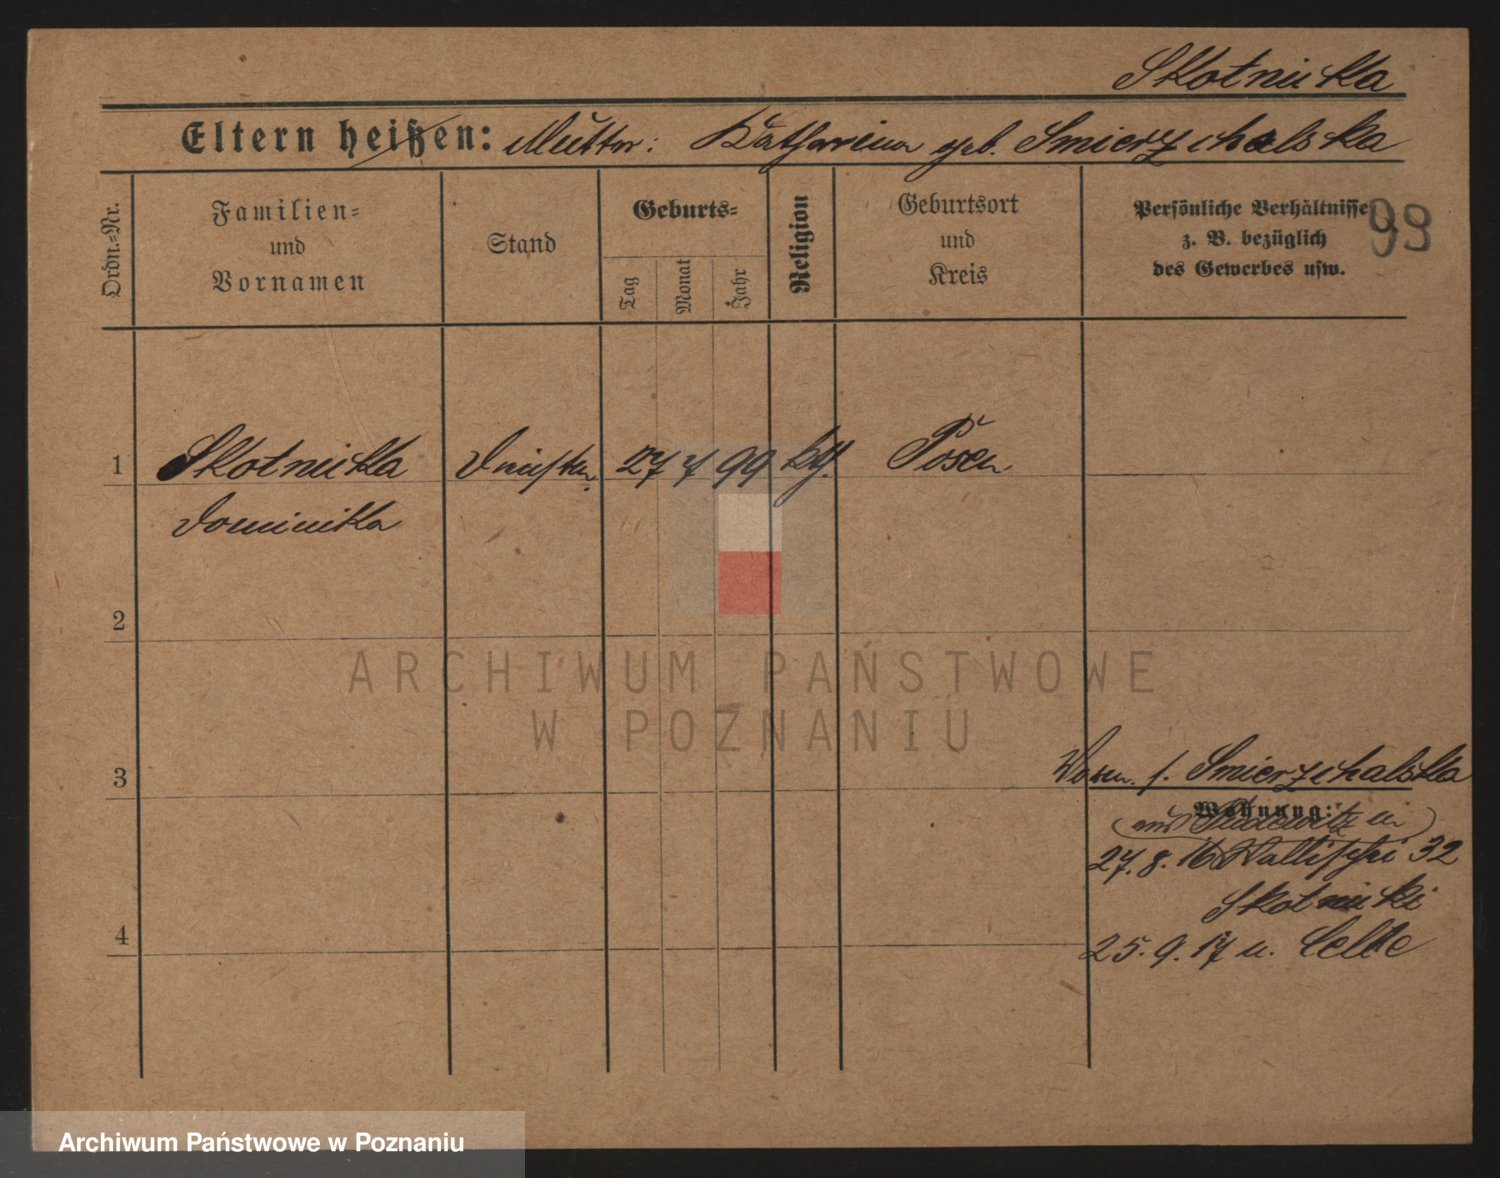 Skotnicka
Eltern heißen: Mutter: Katharina geb. Smierzchalska
Ordn.-Nr.
Familien-
und
Vornamen
Stand
Geburts-
Tag
Monat
Jahr
Religion
Geburtsort
und
Kreis
Persönliche Verhältnisse
z. B. bezüglich
des Gewerbes usw.
99
1 Skotnicka 27 7 99 kth. Posen
Dominika
2
ARCHIWUM PAŃSTWOWE
W POZNANIU
3
Smierzchalska
Wohnung:
aus Pudewitz
27. 8. 16 Wallischei 32
Skotnicki
4
25. 9. 17 u.
Archiwum Państwowe w Poznaniu